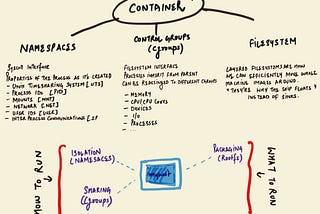 CONTAINER
NAMESPACES
SYSCALL INTERFACE
PROPERTIES OF THE PROCESS AS IT'S CREATED
- UNIX TIMESHARING SYSTEM [UTS]
- PROCESS IDS [PID]
- MOUNTS [MNT]
- NETWORK [NET]
- USER IDS [USER]
- INTER PROCESS COMMUNICATIONS [IPC]
CONTROL GROUPS
(Cgroups)
FILESYSTEM INTERFACE
PROCESS INHERIT FROM PARENT
CAN BE REASSIGNED TO DIFFERENT CGROUPS
- MEMORY
- CPU/CPU CORES
- DEVICES
- I/O
- PROCESSES
- ...
FILESYSTEM
LAYERED FILESYSTEMS ARE HOW
WE CAN EFFICIENTLY MOVE WHOLE
MACHINE IMAGES AROUND.
* THEY'RE WHY THE SHIP FLOATS &
INSTEAD OF SINKS.
HOW TO RUN
ISOLATION
(NAMESPACES)
SHARING
(Cgroups)
PACKAGING
(Rootfs)
WHAT TO RUN